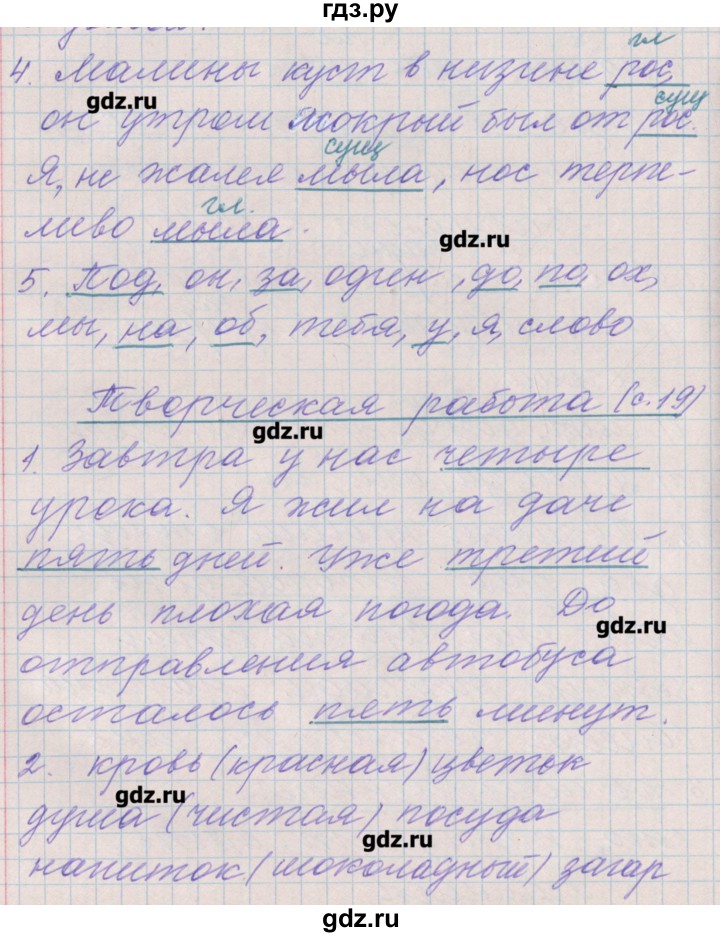 гдз.ру
гл
4. Малины куст в низине рос,
gdz.ru
сущ
он утром мокрый был от рос.
сущ
Я, не жалея мыла, нос терпе-
гл.
ливо мыла.
gdz.ru
5. Под, он, за, один, до, по, ох,
мы, на, об, тебя, у, я, слово
Творческая работа (с. 19)
gdz.ru
1. Завтра у нас четыре
урока. Я жил на даче
пять дней. Уже третий
день плохая погода. До
gdz.ru
отправления автобуса
осталось пять минут.
2. кровь (красная) цветок
gdz.ru
душа (чистая) посуда
gdz.ru
напиток (шоколадный) загар
gdz.ru